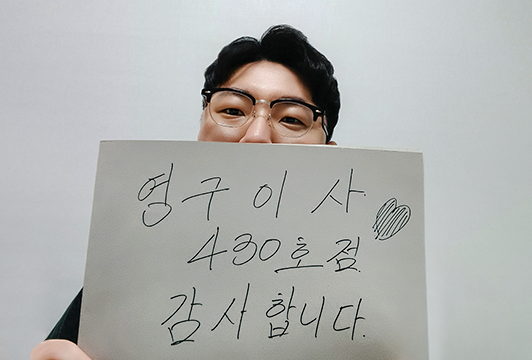 영구이사
430호점
감사합니다.